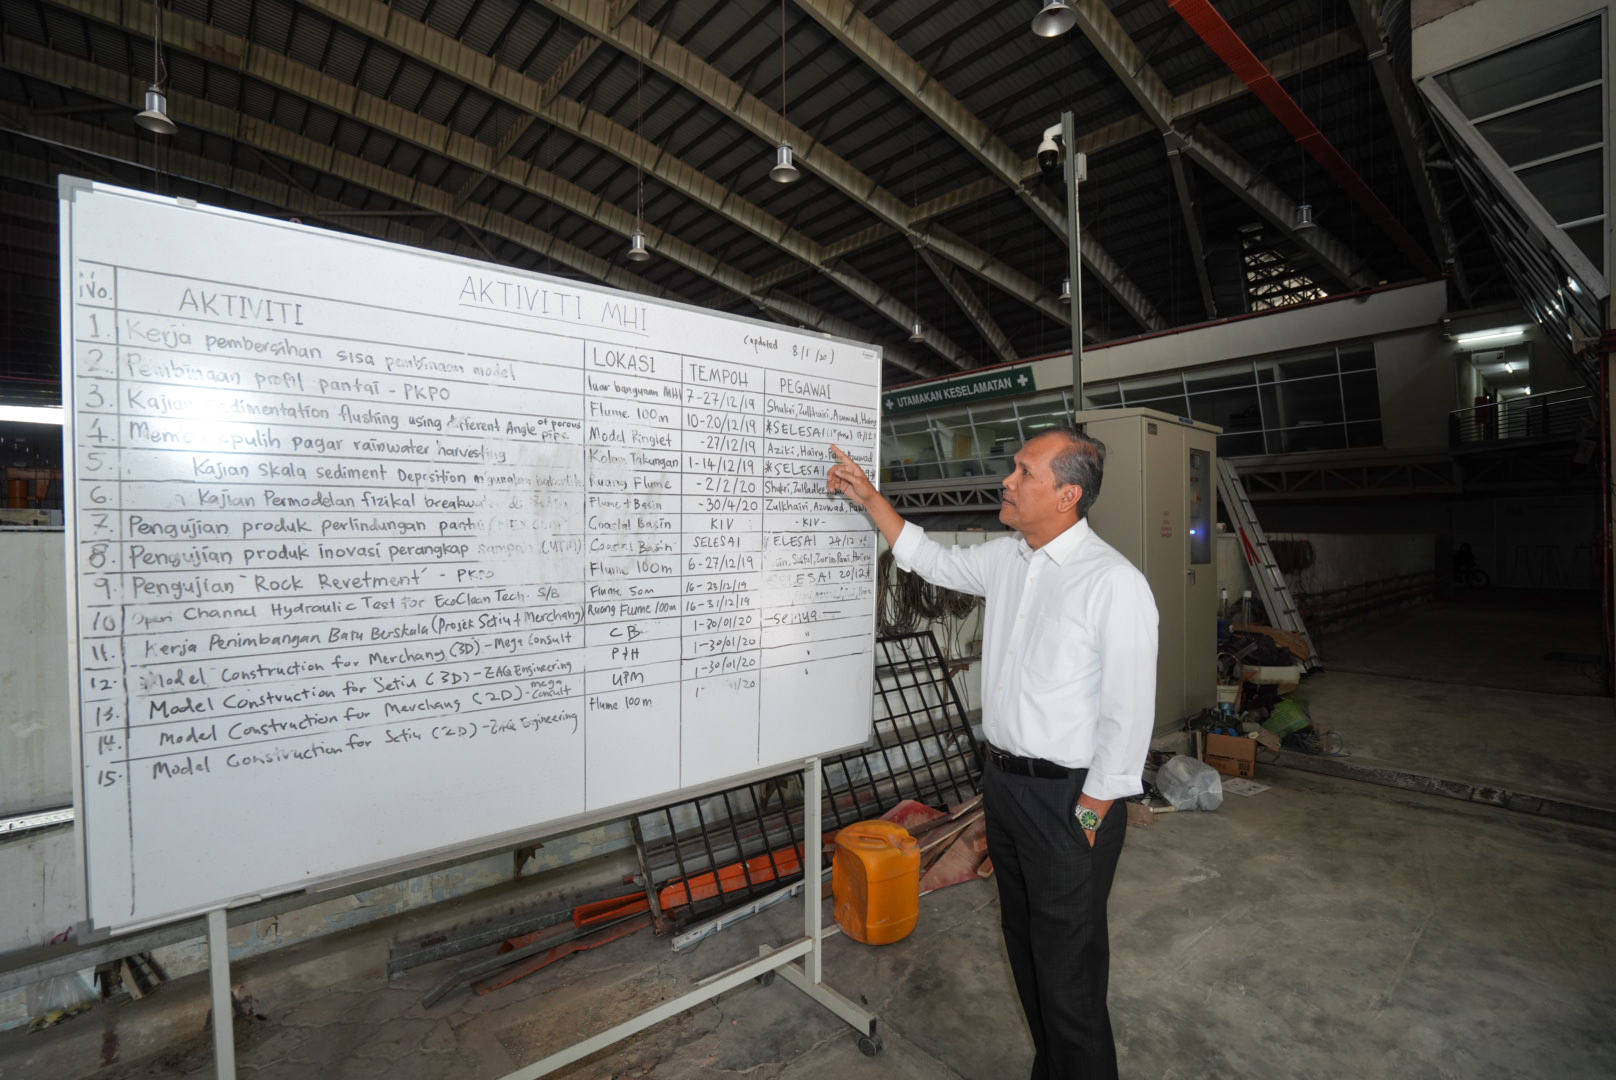 AKTIVITI MHI
(updated 8/1/20)
No. AKTIVITI LOKASI TEMPOH PEGAWAI
1. Kerja pembersihan sisa pembinaan model luar bangunan MHI 7-27/12/19 Shukri, Zulkhairi, Azuwad, Hairy
2. Pembinaan profil pantai - PKPO Flume 100m 10-20/12/19 *SELESAI 17/12
3. Kajian sedimentation flushing using different Angle of porous pipe Model Ringlet -27/12/19 Aziki, Hairy,
4. pulih pagar rainwater harvesting Kolam Takungan 1-14/12/19 *SELESAI
5. Kajian skala sediment Deposition Ruang Flume -2/2/20 Shukri,
6. Kajian Permodelan fizikal Flume + Basin -30/4/20 Zulkhairi, Azuwad,
7. Pengujian produk perlindungan Coastal Basin KIV -KIV-
8. Pengujian produk inovasi perangkap (UTM) Coastal Basin SELESAI ELESAI 24/12
9. Pengujian "Rock Revetment" - PKPO Flume 100m 6-27/12/19
10 Open Channel Hydraulic Test for EcoClean Tech. S/B Flume 50m 16-23/12/19 ELESAI 20/12*
11. Kerja Penimbangan Batu Berskala (Projek Setiu & Merchang) Ruang Flume 100m 16-31/12/19
12. Model Construction for Merchang (3D) - Mega Consult CB 1-30/01/20 -semua-
13. Model Construction for Setiu (3D) - ZAQ Engineering P+H 1-30/01/20 "
14. Model Construction for Merchang (2D) - mega consult UPM 1-30/01/20 "
15. Model Construction for Setiu (2D) - ZAQ Engineering Flume 100m 1- /01/20 "
UTAMAKAN KESELAMATAN